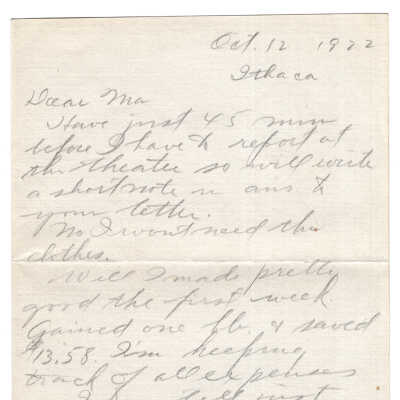 Oct. 12 1922
Ithaca
Dear Ma
Have just 45 min
before I have to report at
the theater so will write
a short note in ans to
your letter.
No I wont need the
clothes.
Well I made pretty
good the first week.
Gained one lb. & saved
$13.58. I'm keeping
track of all expenses
just